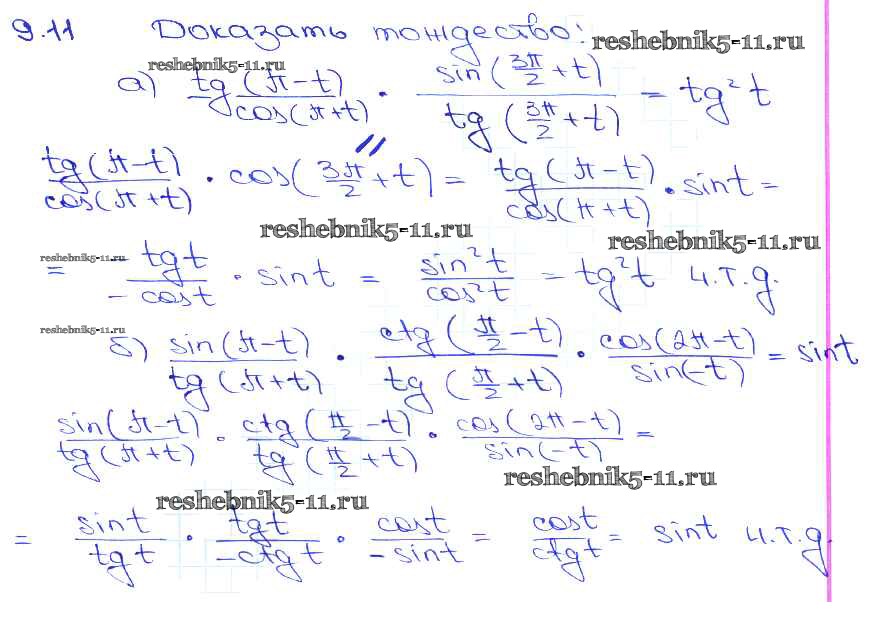 9.11 Доказать тождество:
reshebnik5-11.ru
reshebnik5-11.ru
а) tg(π-t)/cos(π+t) · sin(3π/2+t)/tg(3π/2+t) = tg²t
tg(π-t)/cos(π+t) · cos(3π/2+t) = tg(π-t)/cos(π+t) · sint =
reshebnik5-11.ru
reshebnik5-11.ru
reshebnik5-11.ru
= -tgt/-cost · sint = sin²t/cos²t = tg²t ч.т.д.
reshebnik5-11.ru
б) sin(π-t)/tg(π+t) · ctg(π/2-t)/tg(π/2+t) · cos(2π-t)/sin(-t) = sint
sin(π-t)/tg(π+t) · ctg(π/2-t)/tg(π/2+t) · cos(2π-t)/sin(-t) =
reshebnik5-11.ru
reshebnik5-11.ru
= sint/tgt · tgt/-ctgt · cost/-sint = cost/ctgt = sint ч.т.д.